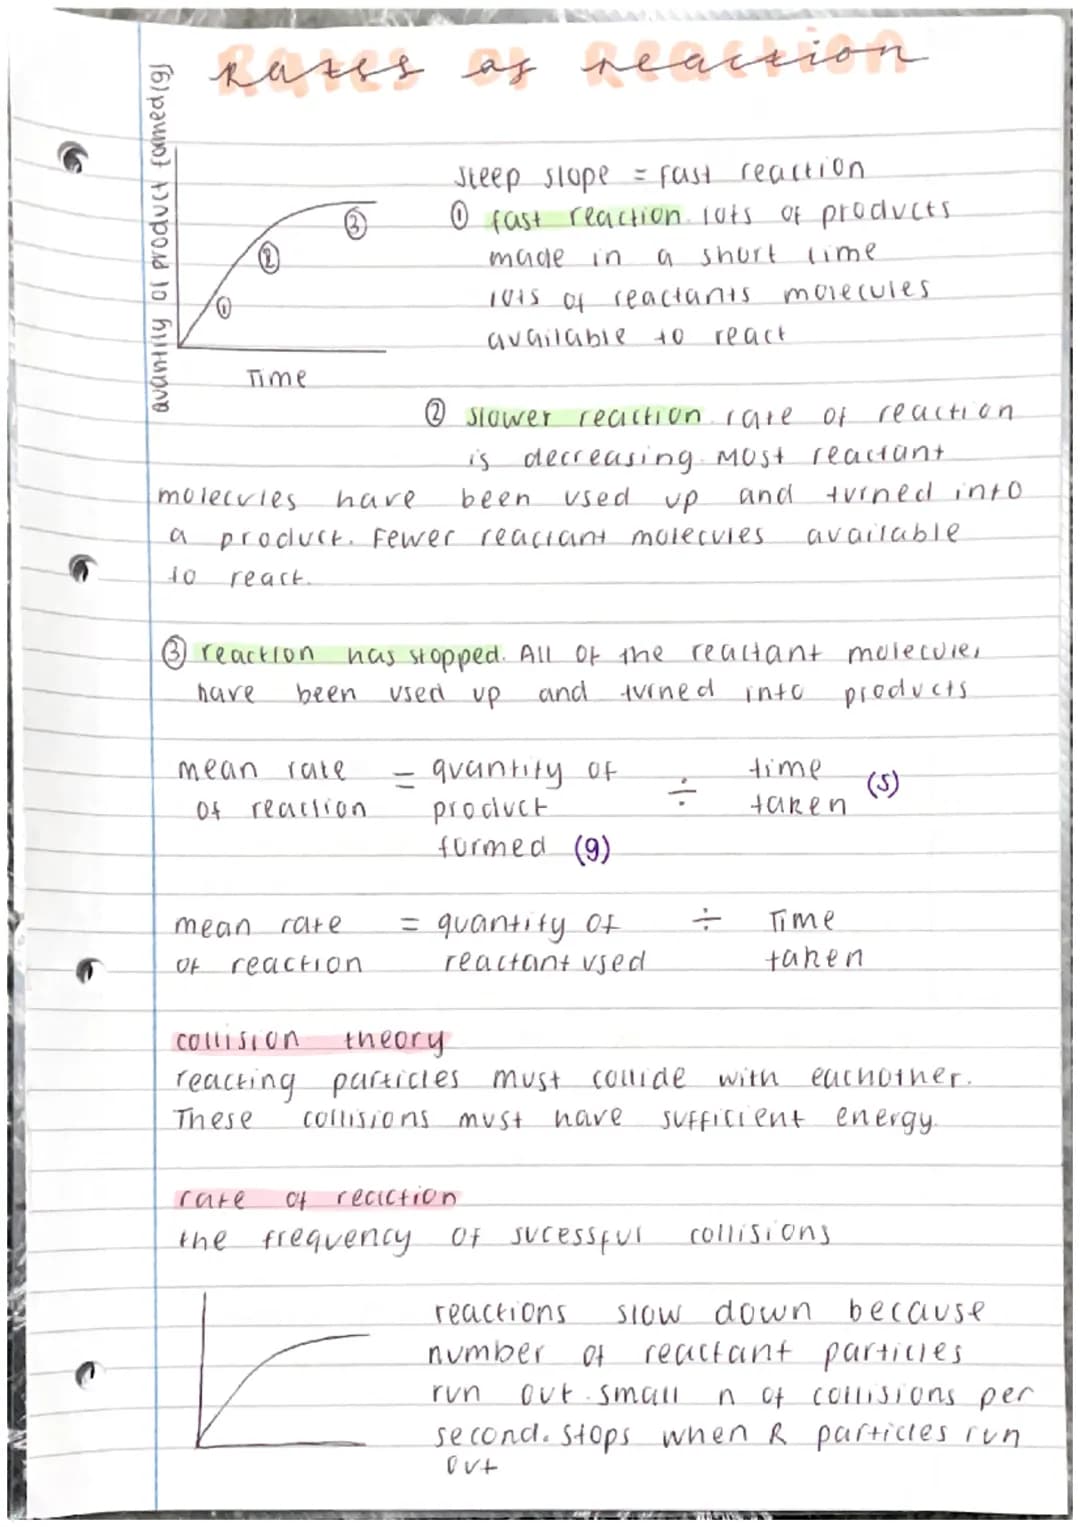 Rates of reaction
quantity of product formed (g)
Time
steep slope = fast reaction
① fast reaction. lots of products
made in a short time
lots of reactants molecules
available to react
② slower reaction rate of reaction
is decreasing. Most reactant
molecules have been used up and turned into
a product. Fewer reactant molecules available
to react.
③ reaction has stopped. All of the reactant molecules
have been used up and turned into products
mean rate = quantity of ÷ time (s)
of reaction product taken
formed (g)
mean rate = quantity of ÷ Time
of reaction reactant used taken
collision theory
reacting particles must collide with eachother.
These collisions must have sufficient energy.
rate of reaction
the frequency of sucessful collisions
reactions slow down because
number of reactant particles
run out. small n of collisions per
second. Stops when R particles run
out
①
②
③